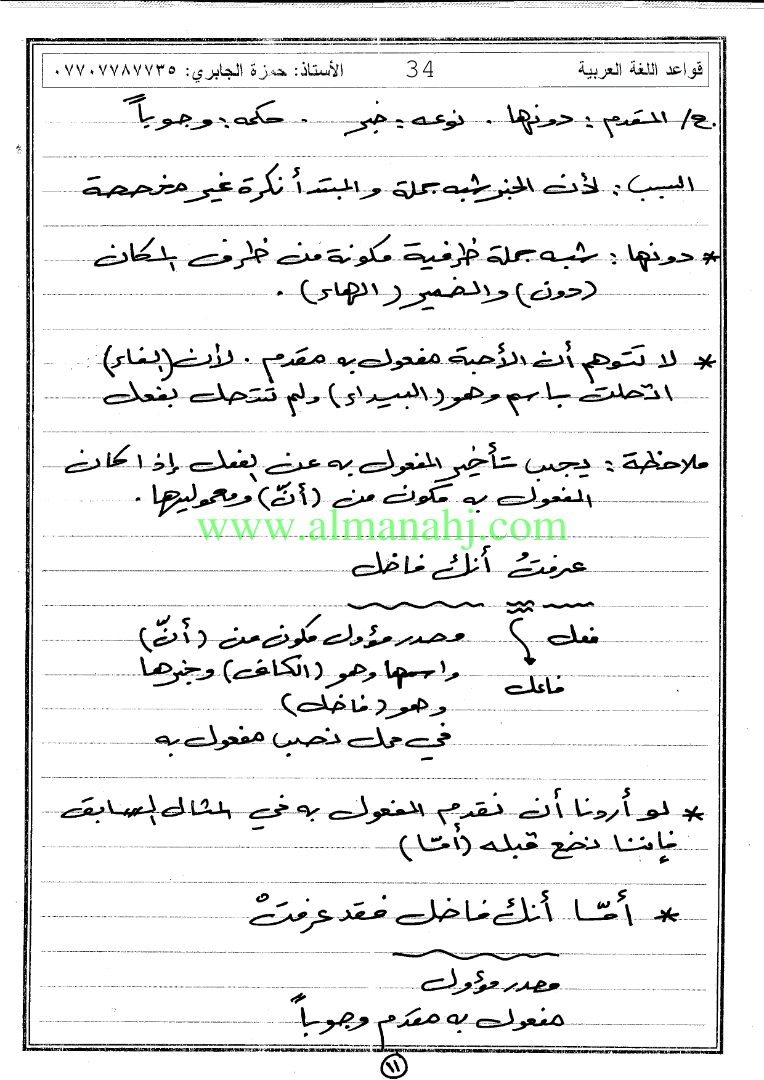 قواعد اللغة العربية 34 الأستاذ: حمزة الجابري: ٠٧٧٠٧٧٨٧٧٣٥
ج/ المتقدم : دونها . نوعه : خبر . حكمه : وجوباً
السبب : لأن الخبر شبه جملة والمبتدأ نكرة غير مخصصة
* دونها : شبه جملة ظرفية مكونة من ظرف المكان
(دون) والضمير (الهاء) .
* لا تتوهم أن الأحبة مفعول به مقدم . لأن (الفاء)
اتصلت باسم وهو (البيداء) ولم تتصل بفعل
ملاحظة : يجب تأخير المفعول به عن الفعل إذا كان
المفعول به مكون من (أنّ) ومعموليها .
www.almanahj.com
عرفتُ أنك فاضل
فعل
فاعل
مصدر مؤول مكون من (أنّ)
واسمها وهو (الكاف) وخبرها
وهو (فاضل)
في محل نصب مفعول به
* لو أردنا أن نقدم المفعول به في المثال السابق
فإننا نضع قبله (أمّا)
* أمّا أنك فاضل فقد عرفتْ
مصدر مؤول
مفعول به مقدم وجوباً
١١